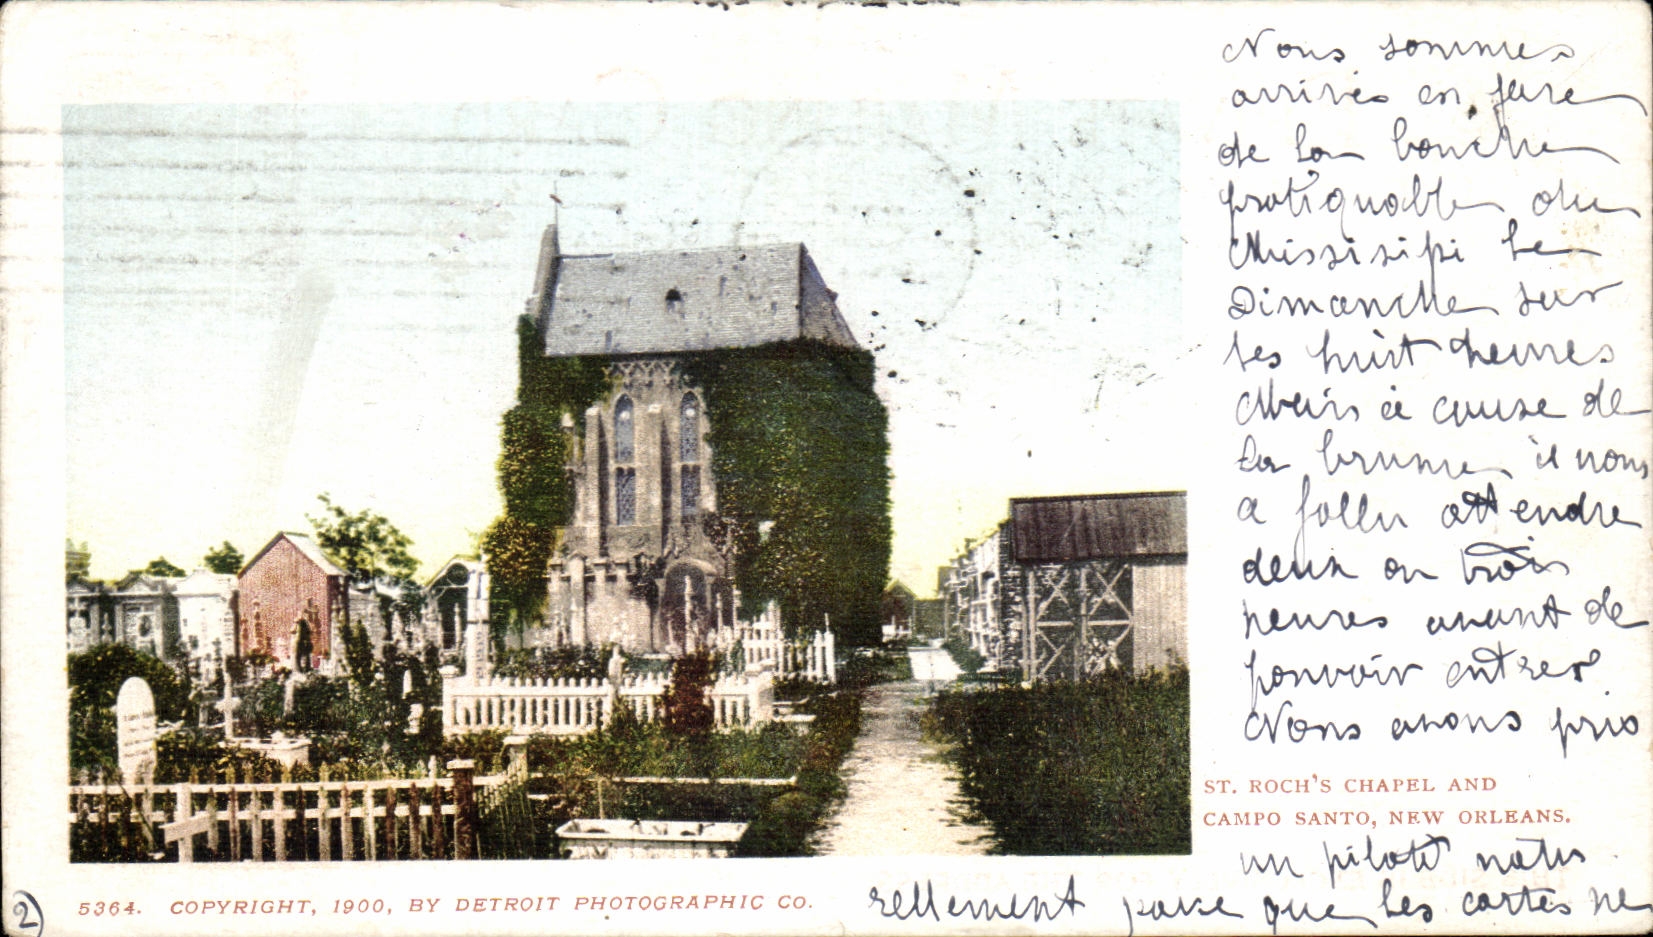 Nous sommes
arrivés en face
de la bouche
pratiquable du
Mississipi le
Dimanche sur
les huit heures
Mais à cause de
la brume il nous
a fallu attendre
deux ou trois
heures avant de
pouvoir entrer.
Nous avons pris
ST. ROCH'S CHAPEL AND
CAMPO SANTO, NEW ORLEANS.
un pilote natu
rellement parce que les cartes ne
2
5364. COPYRIGHT, 1900, BY DETROIT PHOTOGRAPHIC CO.